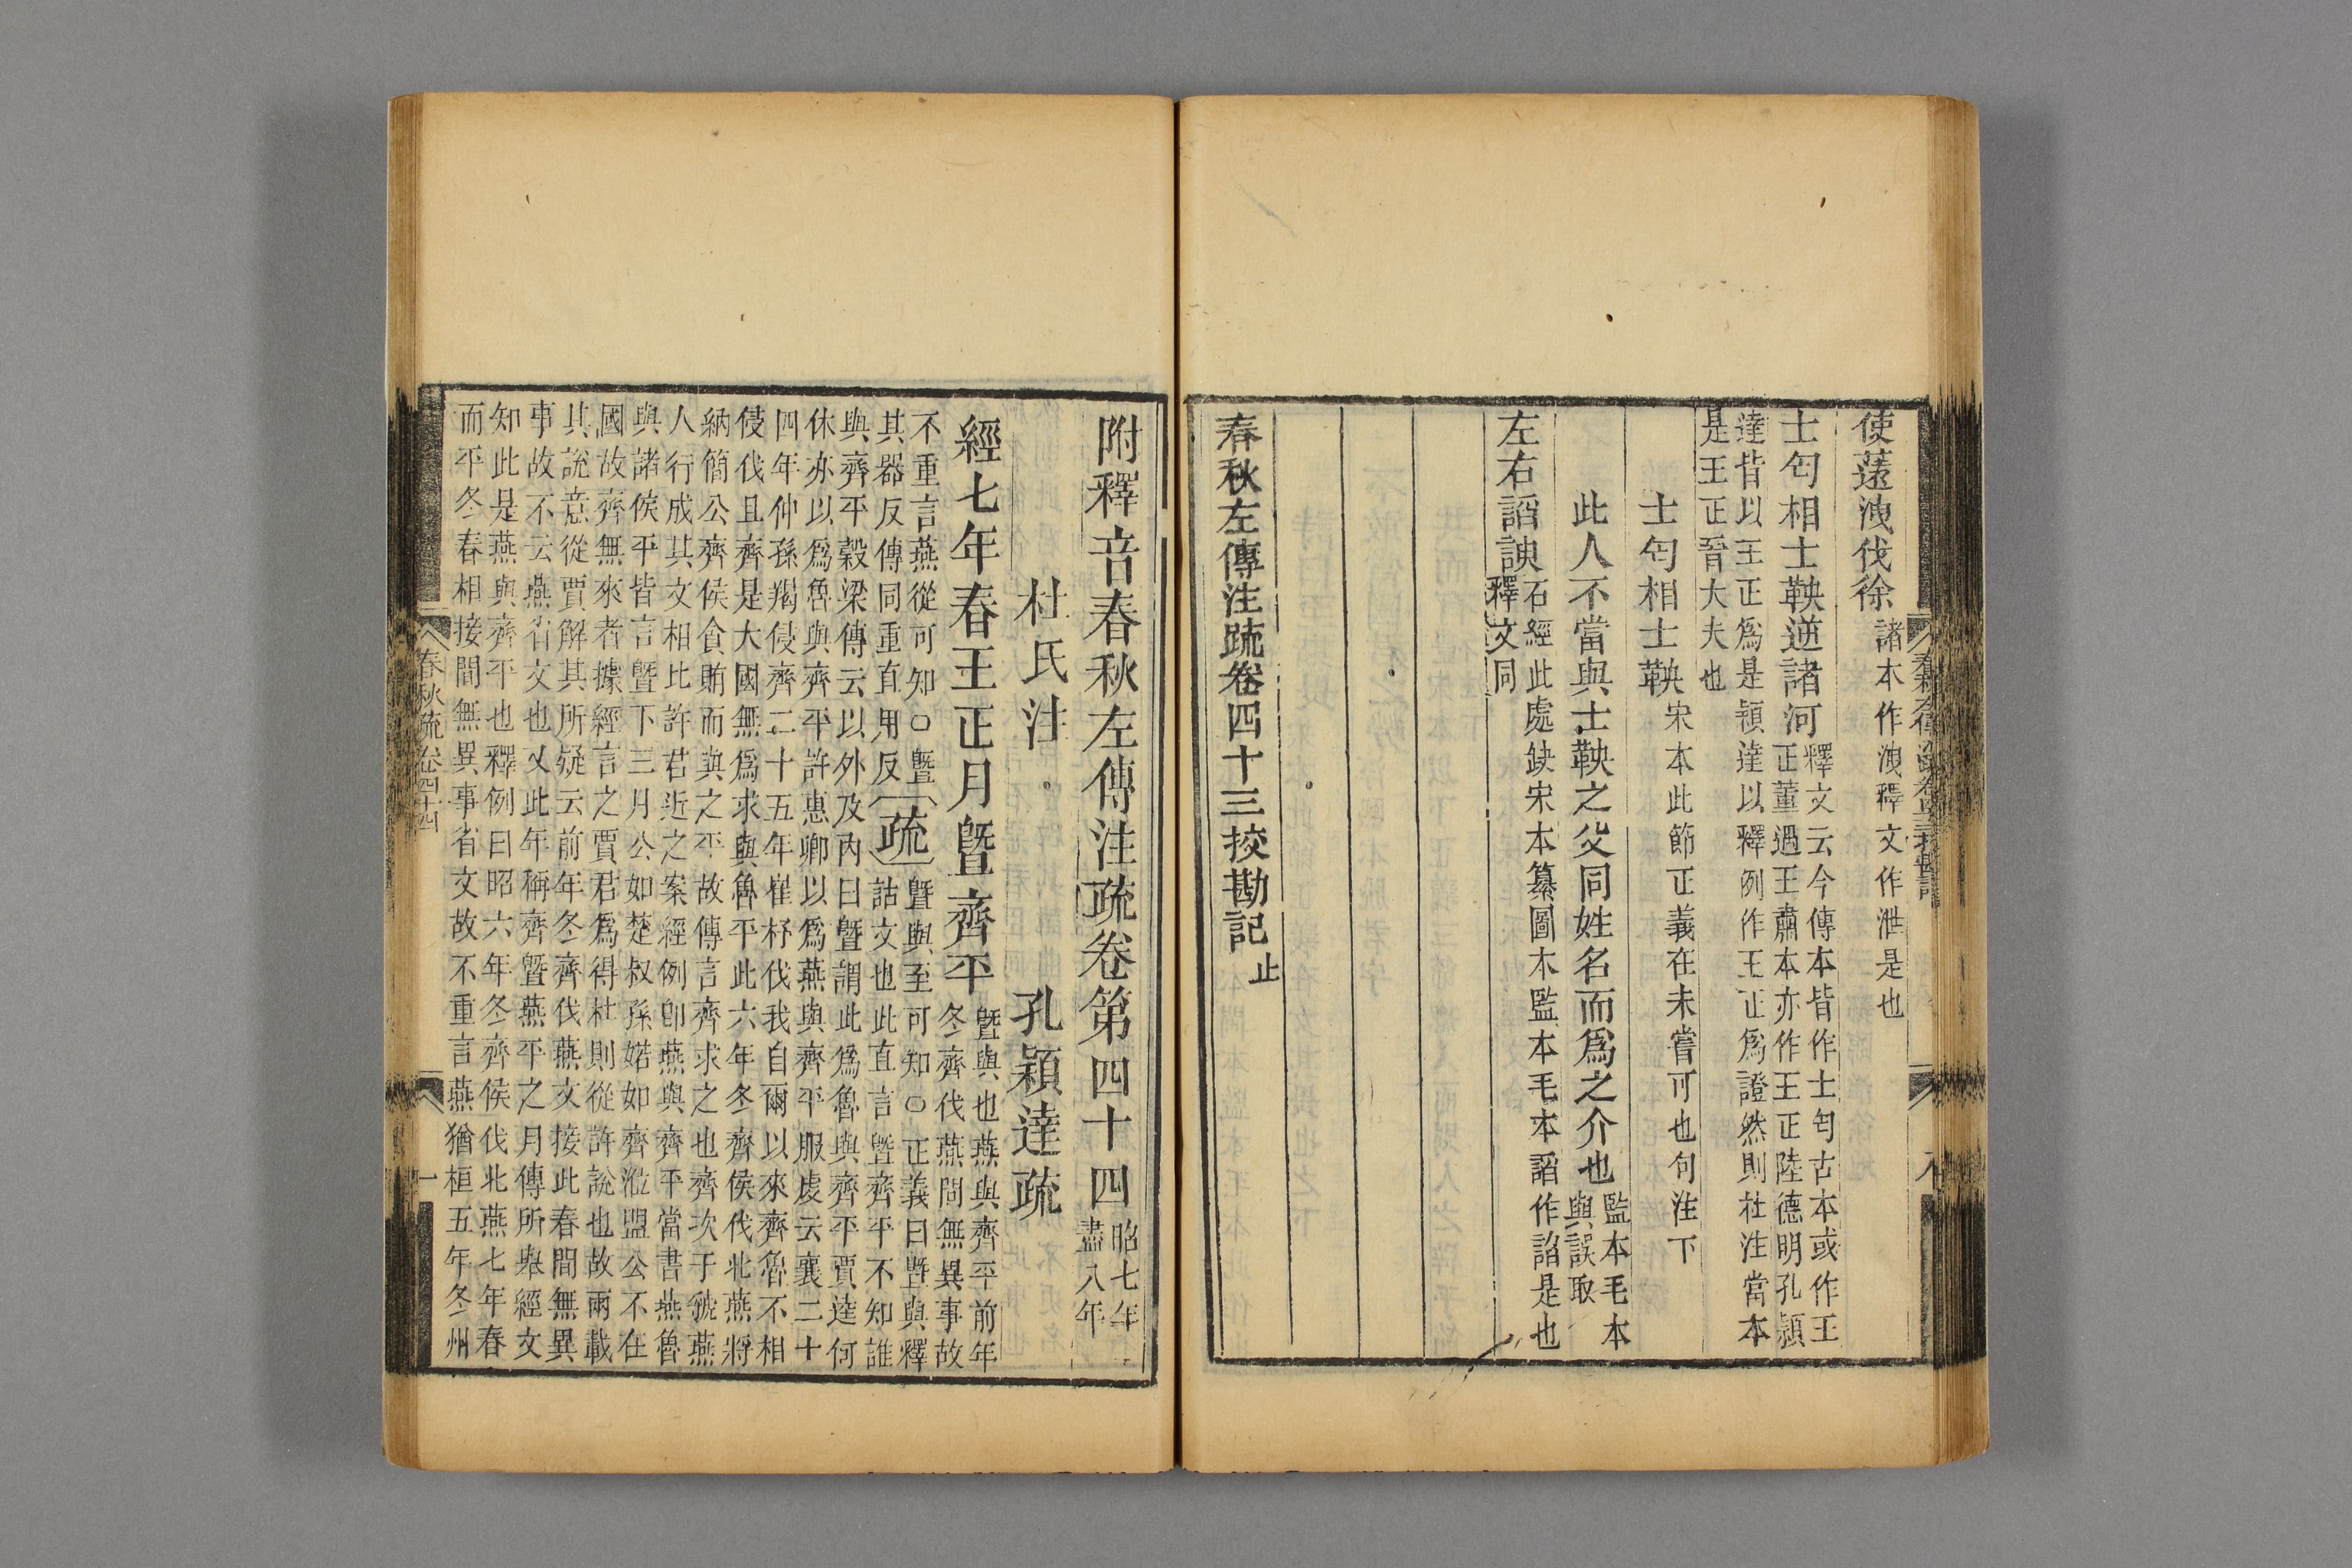 使薳洩伐徐諸本作洩釋文作泄是也
士匄相士鞅逆諸河釋文云今傳本皆作士匄古本或作王
正董遇王肅本亦作王正陸德明孔穎
達皆以王正爲是穎達以釋例作王正爲證然則杜注當本
是王正晉大夫也
士匄相士鞅宋本此節正義在未嘗可也句注下
此人不當與士鞅之父同姓名而爲之介也監本毛本
與誤取
左右謟諛石經此處缺宋本纂圖本監本毛本謟作諂是也
釋文同
春秋左傳注疏卷四十三挍勘記止
附釋音春秋左傳注疏卷第四十四昭七年
盡八年
杜氏注 孔穎達疏
經七年春王正月曁齊平曁與也燕與齊平前年
冬齊伐燕間無異事故
不重言燕從可知○曁
其器反傳同重直用反
疏
曁與至可知○正義曰曁與釋
詁文也此直言曁齊平不知誰
與齊平穀梁傳云以外及內曰曁謂此爲魯與齊平賈逵何
休亦以爲魯與齊平許惠卿以爲燕與齊平服虔云襄二十
四年仲孫羯侵齊二十五年崔杼伐我自爾以來齊魯不相
侵伐且齊是大國無爲求與魯平此六年冬齊侯伐北燕將
納簡公齊侯貪賄而與之平故傳言齊求之也齊次于虢燕
人行成其文相比許君近之案經例卽燕與齊平當書燕魯
與諸侯平皆言曁下三月公如楚叔孫婼如齊涖盟公不在
國故齊無來者據經言之賈君爲得杜則從許說也故兩載
其說意從賈解其所疑云前年冬齊伐燕文接此春間無異
事故不云燕省文也又此年稱齊曁燕平之月傳所舉經文
知此是燕與齊平也釋例曰昭六年冬齊侯伐北燕七年春
而平冬春相接間無異事省文故不重言燕猶桓五年冬州
春秋疏卷四十四
一